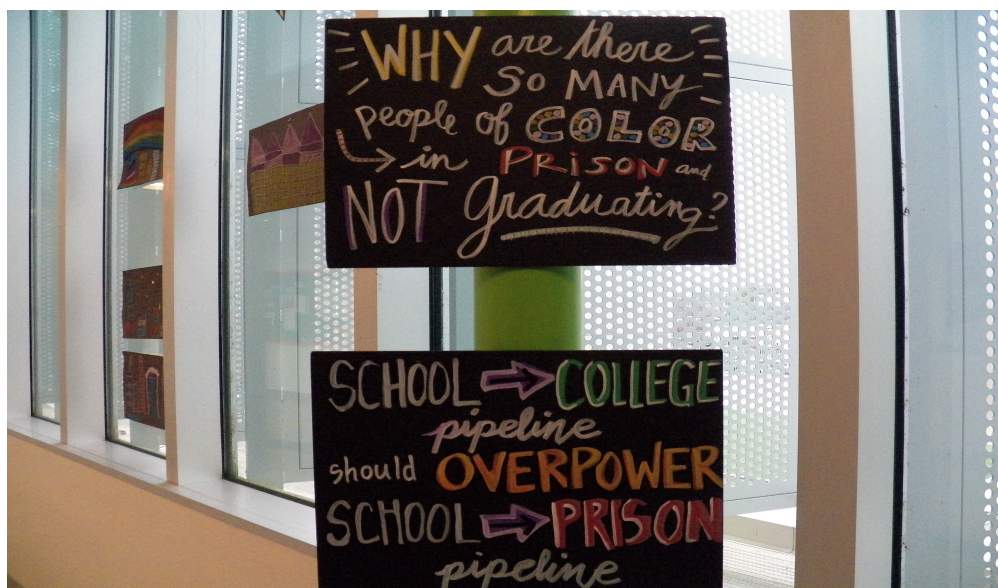 WHY are there
SO MANY
people of COLOR
in PRISON and
NOT Graduating?
SCHOOL COLLEGE
pipeline
should OVERPOWER
SCHOOL PRISON
pipeline